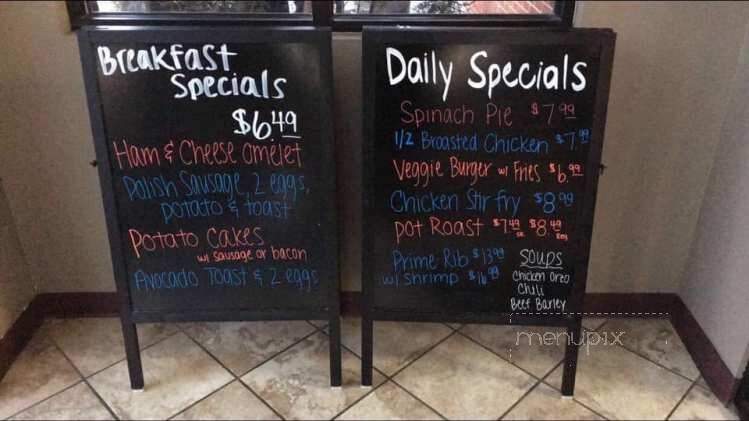 Breakfast
Specials
$6.49
Ham & Cheese omelet
Polish Sausage, 2 eggs,
potato & toast
Potato Cakes
w/ sausage or bacon
Avocado Toast & 2 eggs
Daily Specials
Spinach Pie $7.99
1/2 Broasted Chicken $7.99
Veggie Burger w/ Fries $6.99
Chicken Stir fry $8.99
pot Roast $7.49 $8.49
Prime Rib $13.99
w/ Shrimp $16.99
Soups
Chicken Orzo
Chili
Beef Barley
menupix